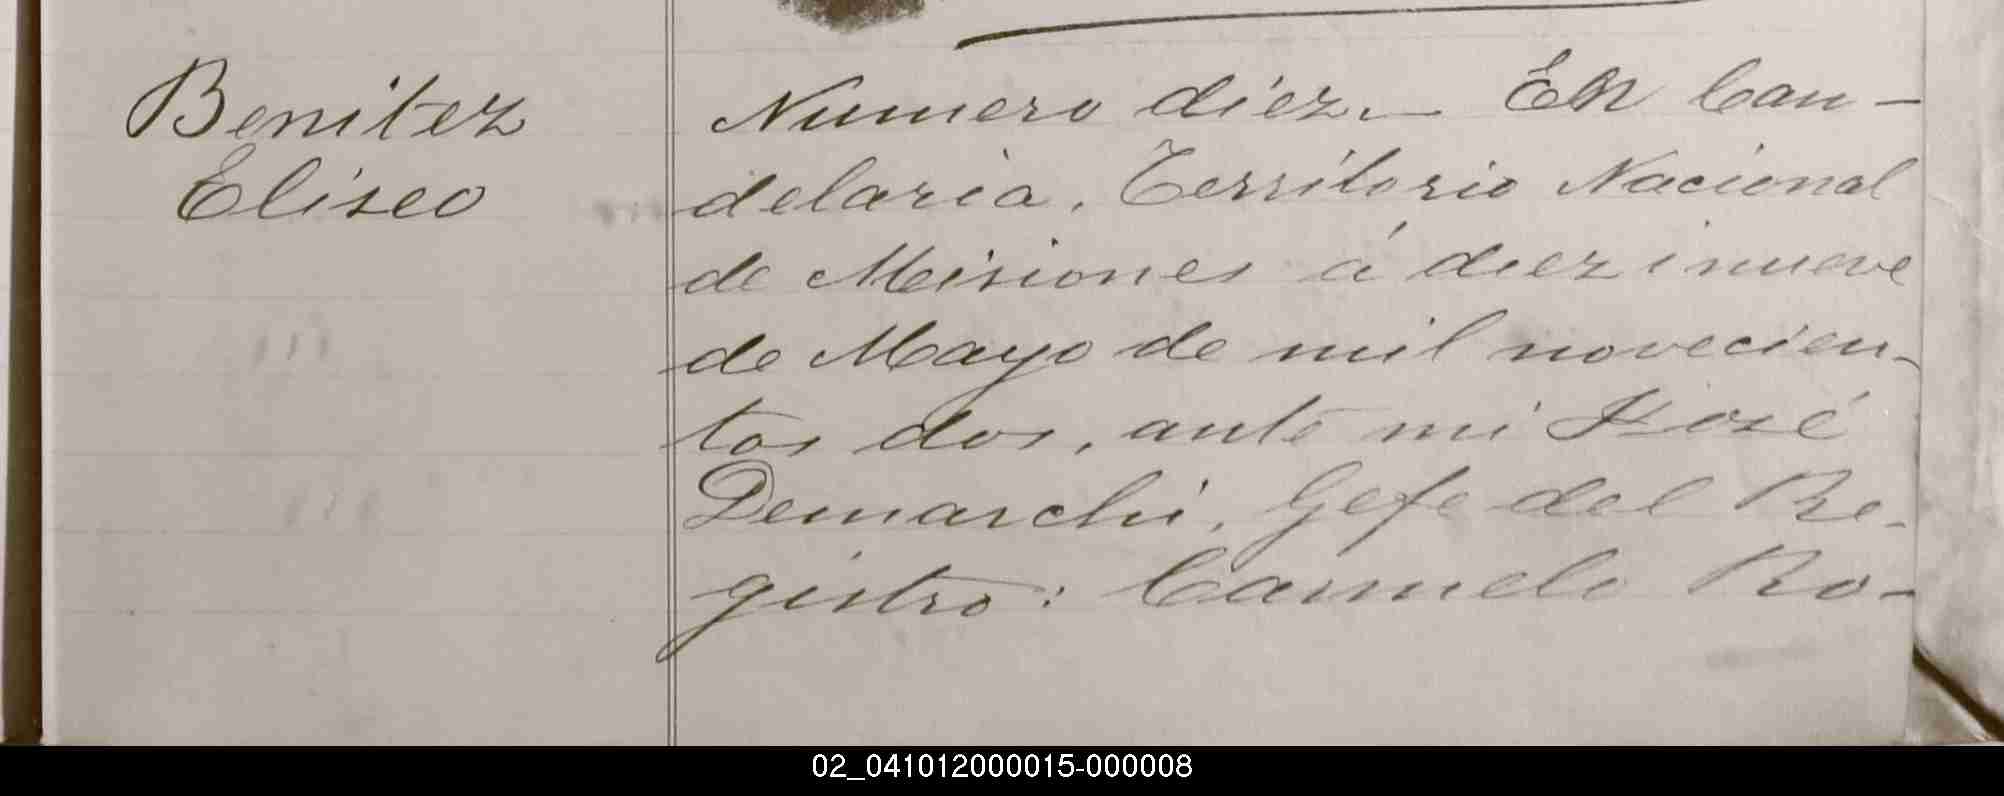 Benitez
Eliseo
Numero diez.— En Can-
delaria, Territorio Nacional
de Misiones á diez i nueve
de Mayo de mil novecien-
tos dos, ante mi José
Demarchi, Gefe del Re-
gistro: Carmelo Ro-
02_041012000015-000008